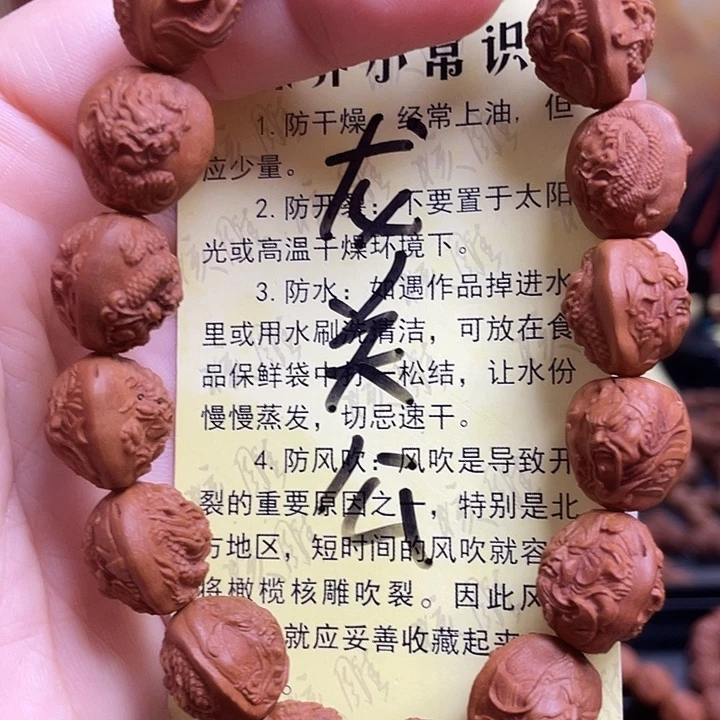 养小常识
1.防干燥：经常上油，但
应少量。
2.防开裂：不要置于太阳
光或高温干燥环境下。
3.防水：如遇作品掉进水
里或用水刷洗清洁，可放在食
品保鲜袋中打一松结，让水份
慢慢蒸发，切忌速干。
4.防风吹：风吹是导致开
裂的重要原因之一，特别是北
方地区，短时间的风吹就容
将橄榄核雕吹裂。因此风
就应妥善收藏起来
。
龙关公